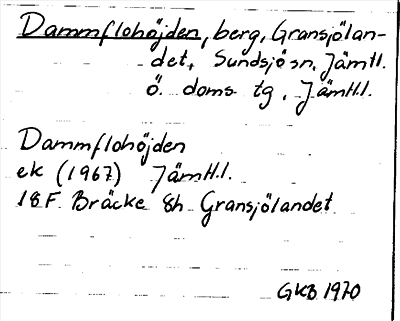 Dammflohöjden, berg, Gransjölan-
det, Sundsjö sn. Jämtl.
Ö. doms. tg., Jämtl.l.
Dammflohöjden
ek (1967) Jämtl.l.
18F Bräcke 8h Gransjölandet
GKB 1970